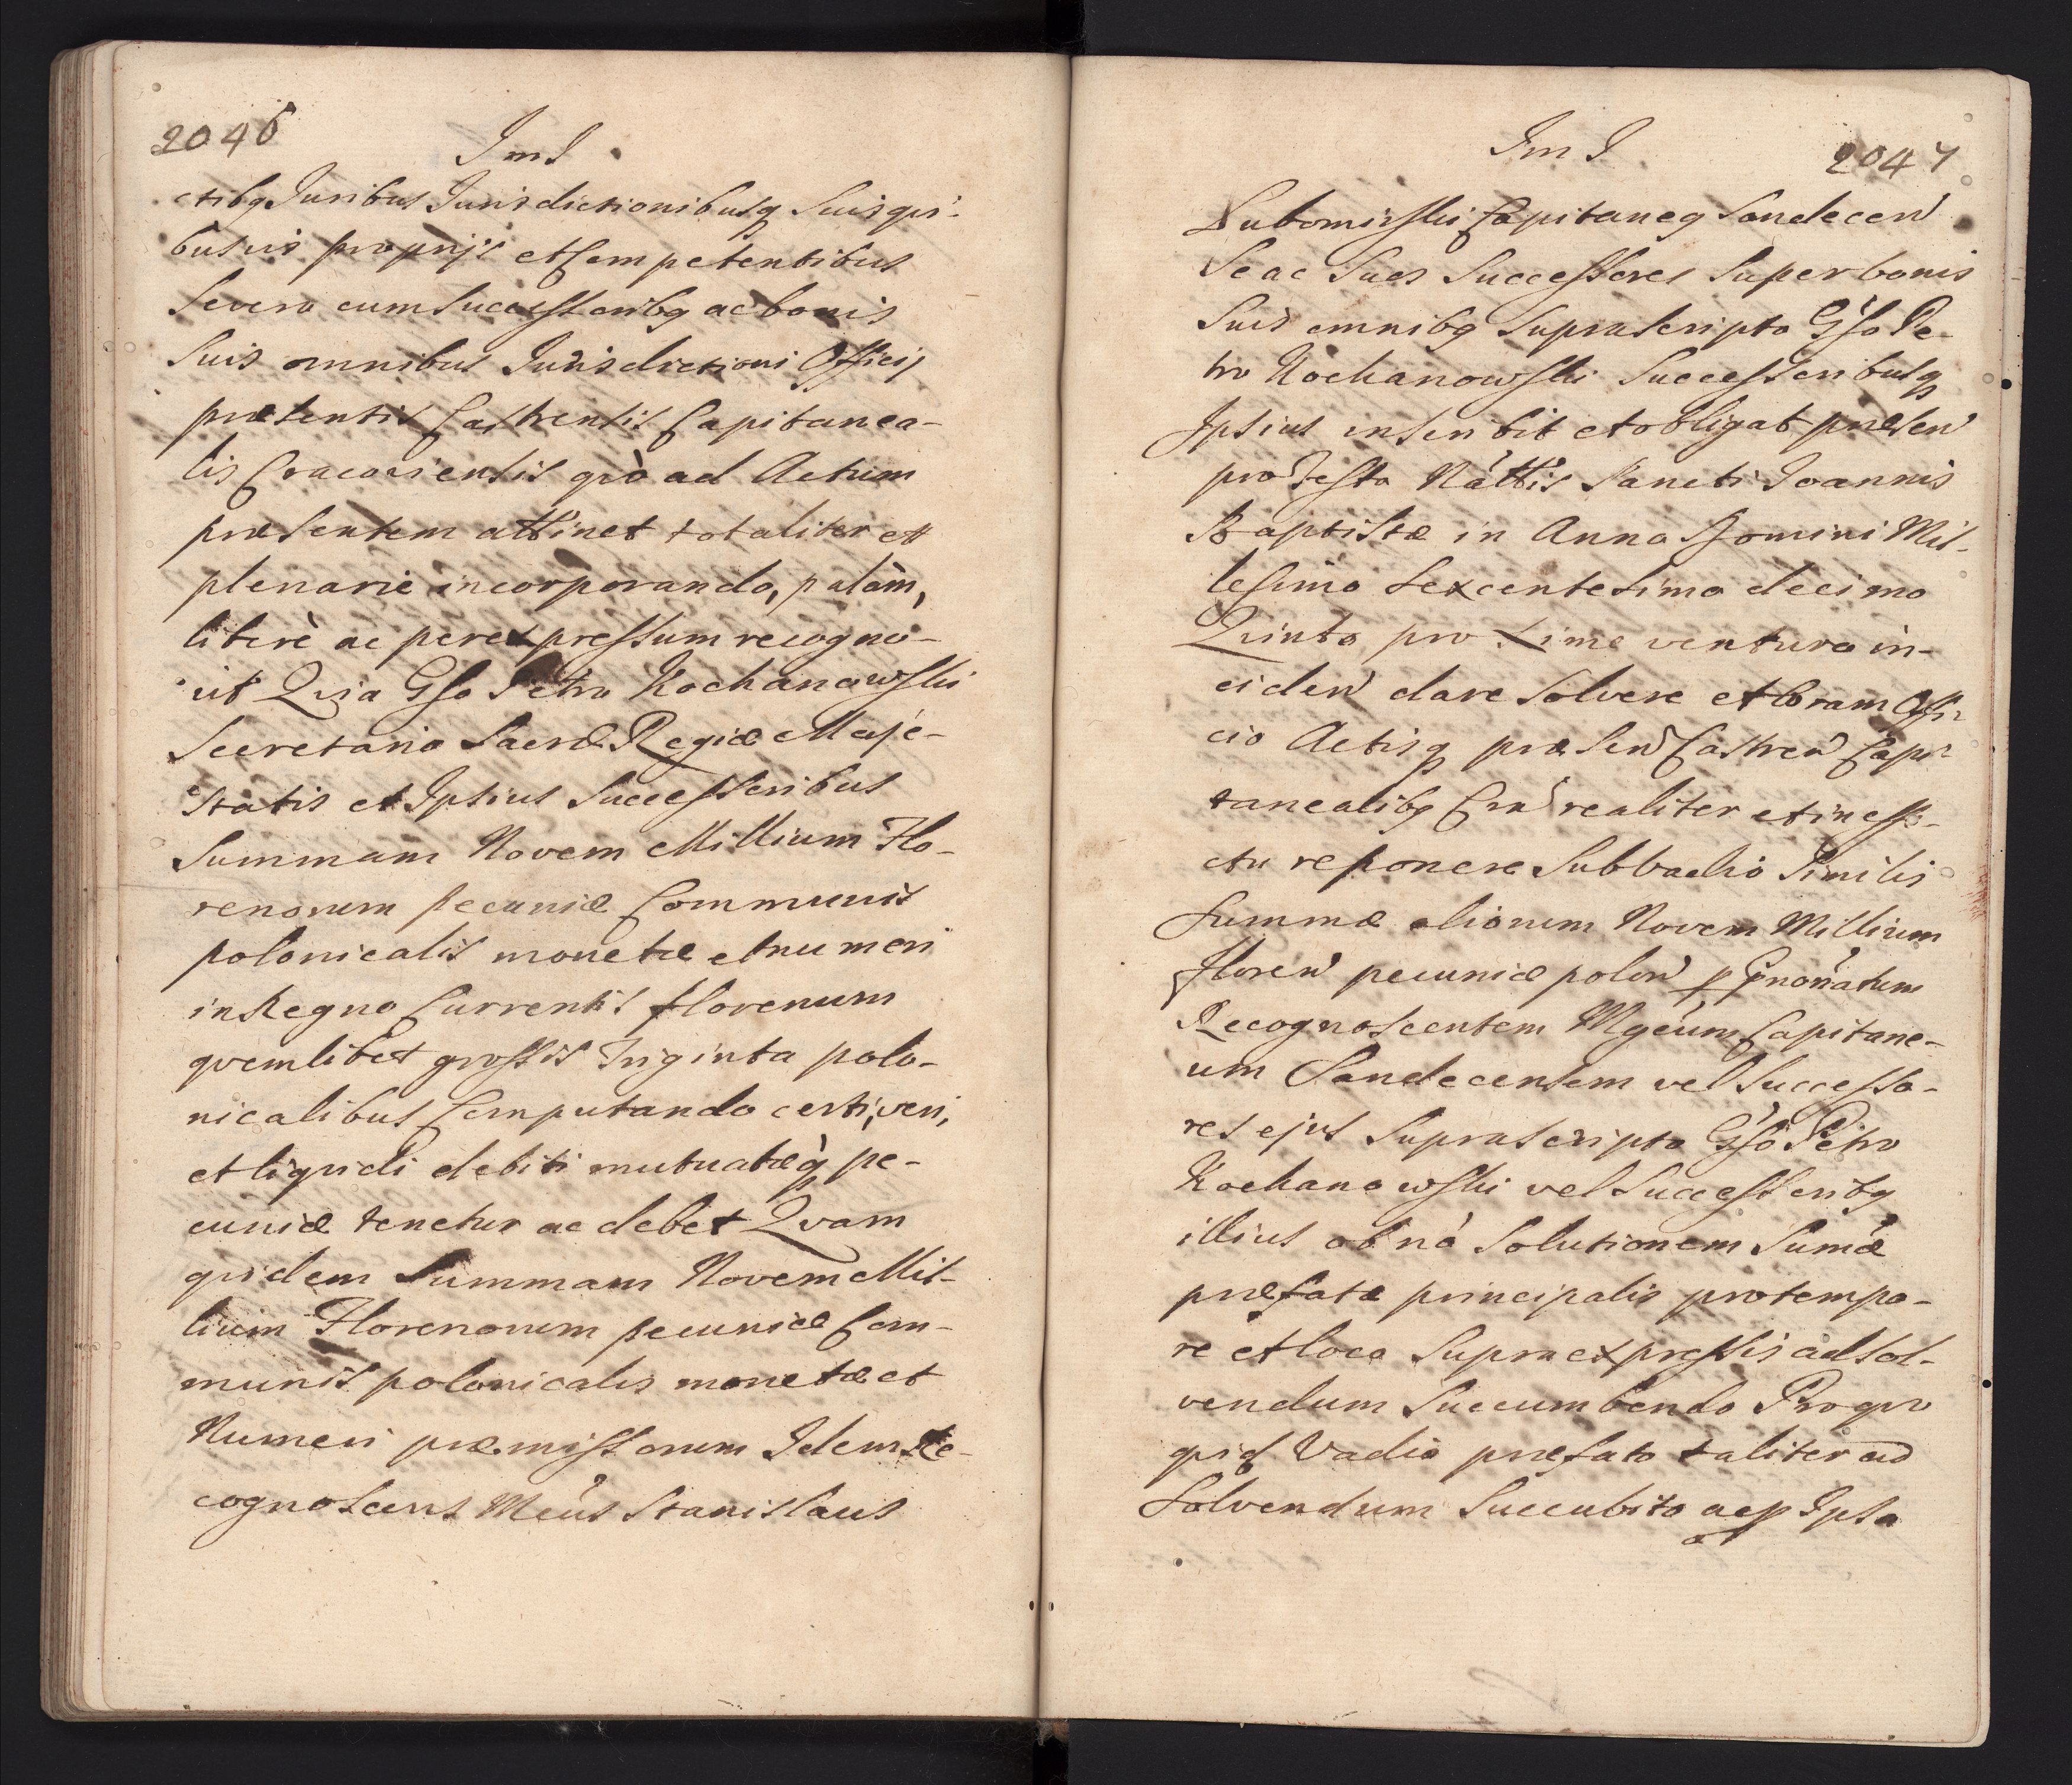 2046
Im I
ctibq Juribus Jurisdictionibusq Suis qvi-
busuis proprijs et Competentibus
Se vero cum Successoribq ac bonis
Suis omnibus Jurisdictioni Officij
præsentis Castrensis Capitanea-
lis Cracoviensis qvò ad Actum
præsentem attinet totaliter et
plenarie incorporando, palàm,
liberè ac per expressum recogno-
vit Qvia Gso Petro Kochanowski
Secretario Sacræ Regiæ Maje-
statis et Ipsius Successoribus
Summam Novem Millium Flo-
renorum pecuniæ Communis
polonicalis monetæ et numeri
in Regno Currentis florenum
qvemlibet grossis Triginta polo-
nicalibus Computando certi, veri,
et liqvidi debiti mutuatæq pe-
cuniæ tenetur ac debet Qvam
qvidem Summam Novem Mil-
lium Florenorum pecuniæ Com-
munis polonicalis monetæ et
Numeri præmissorum Idem Re-
cognoscens Mcus Stanislaus
Im I
2047
Lubomirski Capitaneq Sandecen
Se ac Suos Successores Super bonis
Suis omnibq Suprascripto Gso Pe-
tro Kochanowski Successoribusq
Ipsius inscribit et obligat præsen
pro Festo Nattis Sancti Joannis
Baptistæ in Anno Domini Mil-
lesimo Sexcentesimo decimo
Qvinto proxime venturo in-
ciden dare Solvere et coram Offi-
cio Actisq præsen Castren Capi-
tanealibq Cra realiter et in effe-
ctu reponere Sub vadio Similis
Summæ aliorum Novem Millium
floren pecuniæ polon p prnonatum
Recognoscentem Mgcum Capitane-
um Sandecensem vel Successo-
res ejus Suprascripto Gso Petro
Kochanowski vel Successoribq
illius ob no Solutionem Sumæ
præfatæ principalis pro tempo-
re et loco Supra expressis ad Sol-
vendum Succumbendo Pro qvo
qvid Vadio præfato taliter ad
Solvendum Succubito ac p Ipso